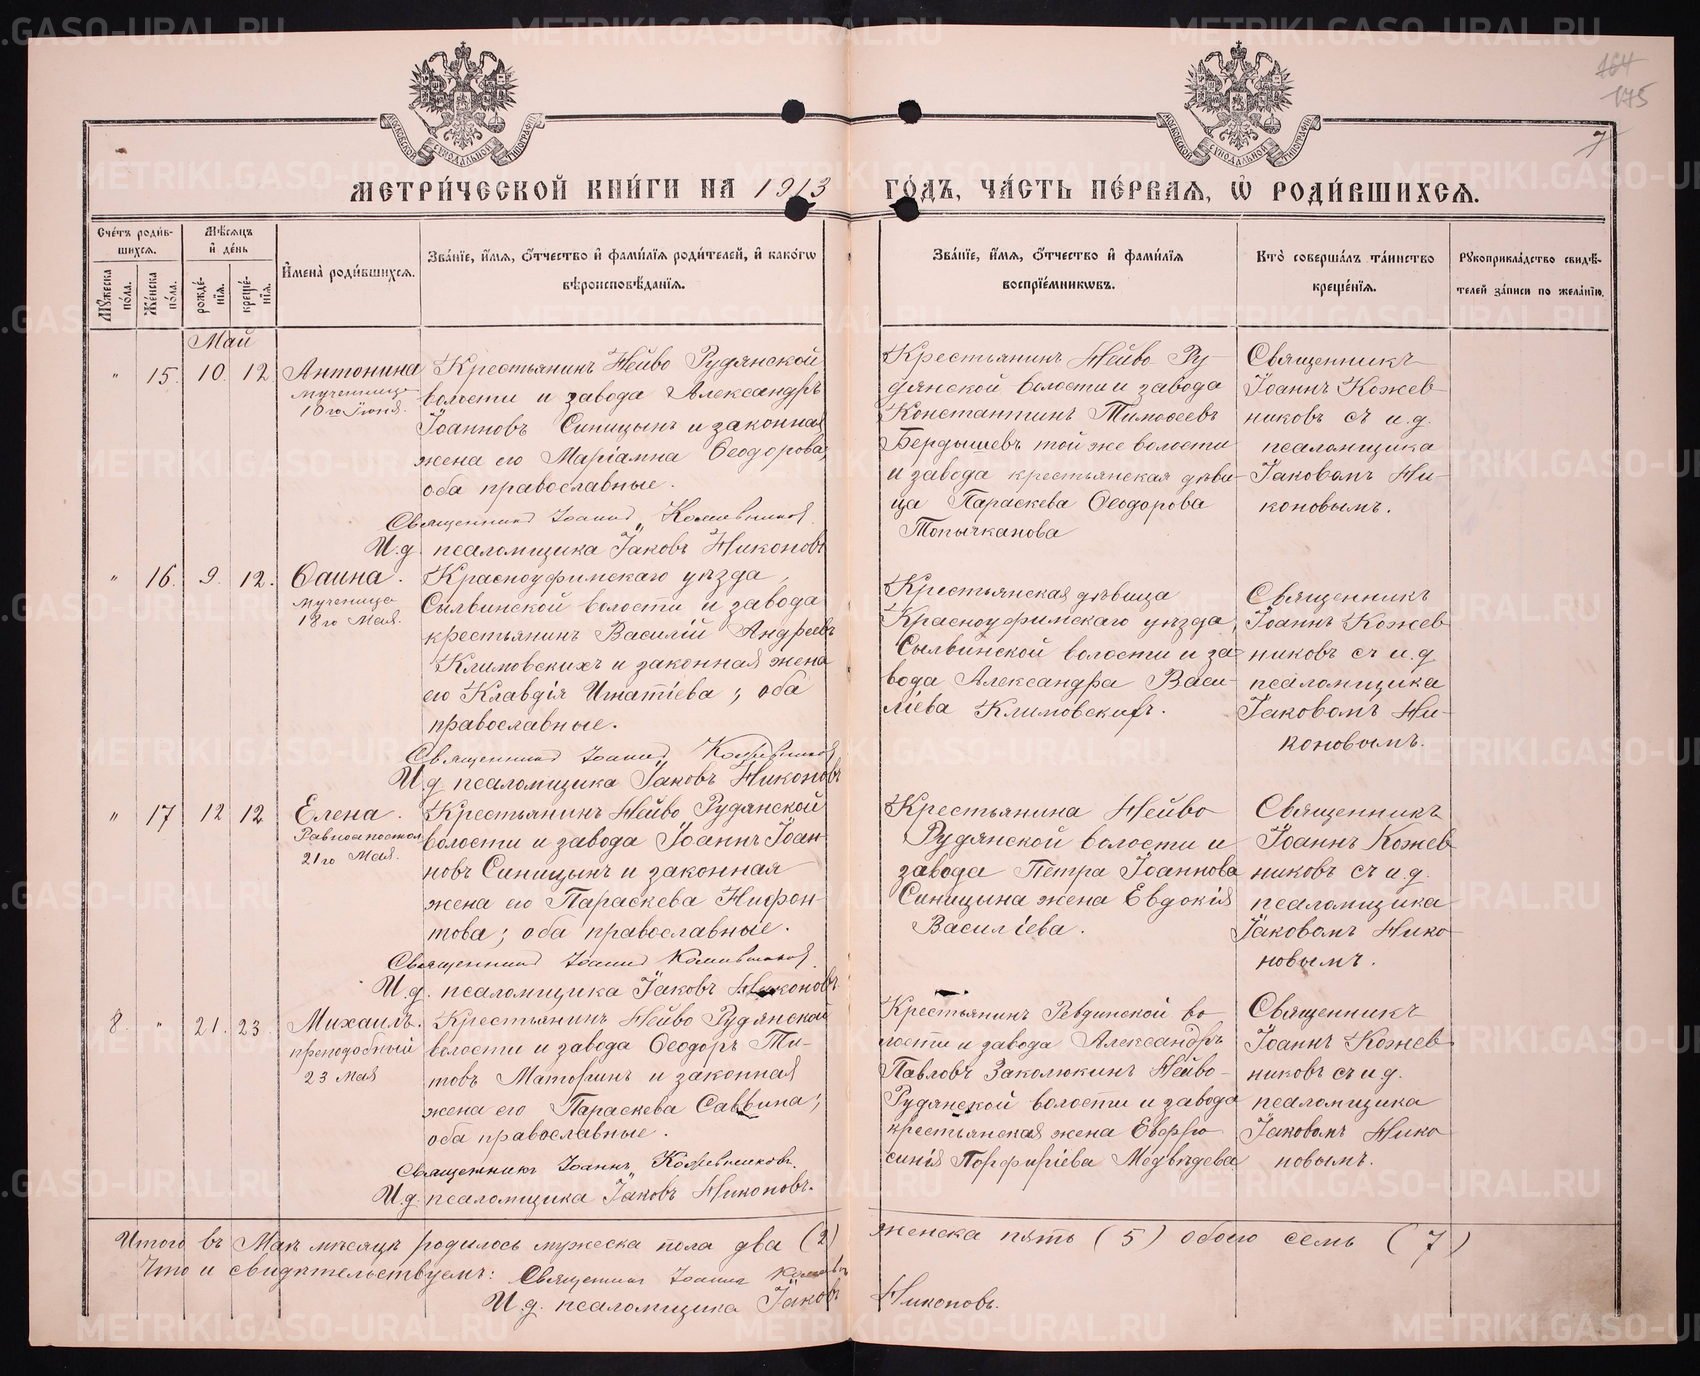 164
175
7
МЕТРИ́ЧЕСКОЙ КНИ́ГИ НА 1913 ГО́ДЪ, ЧА́СТЬ ПЕ́РВАЯ, Ѽ РОДИ́ВШИХСЯ.
Сче́тъ роди́в-
шихся.
Мѣ́сяцъ
и҆ де́нь
Мꙋ́жеска по́ла.
Же́нска по́ла.
рожде́-
нїя.
креще́-
нїя.
И҆мена̀ роди́вшихся.
Зва́нїе, и҆́мя, ѻ҆́тчество и҆ фами́лїя роди́телей, и҆ како́гѡ
вѣроисповѣ́данїя.
Зва́нїе, и҆́мя, ѻ҆́тчество и҆ фами́лїя
воспрїе́мникѡвъ.
Кто̀ соверша́лъ та́инство
креще́нїя.
Рꙋкоприкла́дство свидѣ́-
телей за́писи по жела́нїю.
Май
" 15. 10. 12 Антонина
мученица
10го Іюня.
Крестьянинъ Нейво Рудянской
волости и завода Александръ
Іоанновъ Синицынъ и законная
жена его Маріамна Ѳеодорова;
оба православные.
Священникъ Іоаннъ Кожевниковъ
И.д. псаломщика Іаковъ Никоновъ
Крестьянинъ Нейво Ру-
дянской волости и завода
Константинъ Тимоѳеевъ
Бердышевъ той же волости
и завода крестьянская дѣви-
ца Параскева Ѳеодорова
Топычканова
Священникъ
Іоаннъ Кожев-
никовъ съ и.д.
псаломщика
Іаковомъ Ни-
коновымъ.
" 16. 9. 12. Ѳаина.
мученица
18го Мая.
Красноуфимскаго уѣзда,
Сылвинской волости и завода
крестьянинъ Василій Андреевъ
Климовскихъ и законная жена
его Клавдія Игнатіева; оба
православные.
Священникъ Іоаннъ Кожевниковъ
И.д. псаломщика Іаковъ Никоновъ
Крестьянская дѣвица
Красноуфимскаго уѣзда,
Сылвинской волости и за-
вода Александра Васи-
ліева Климовскихъ.
Священникъ
Іоаннъ Кожев-
никовъ съ и.д.
псаломщика
Іаковомъ Ни-
коновымъ.
" 17 12 12 Елена.
Равноапостол
21го Мая.
Крестьянинъ Нейво Рудянской
волости и завода Іоаннъ Іоан-
новъ Синицынъ и законная
жена его Параскева Нифон-
това; оба православные.
Священникъ Іоаннъ Кожевниковъ
И.д. псаломщика Іаковъ Никоновъ
Крестьянина Нейво
Рудянской волости и
завода Петра Іоаннова
Синицына жена Евдокія
Василіева.
Священникъ
Іоаннъ Кожев-
никовъ съ и.д.
псаломщика
Іаковомъ Нико-
новымъ.
8. " 21. 23. Михаилъ.
преподобный
23 Мая
Крестьянинъ Нейво Рудянской
волости и завода Ѳеодоръ Ти-
товъ Маторинъ и законная
жена его Параскева Саввина;
оба православные.
Священникъ Іоаннъ Кожевниковъ.
И.д. псаломщика Іаковъ Никоновъ.
Крестьянинъ Ревдинской во-
лости и завода Александръ
Павловъ Заколюкинъ Нейво-
Рудянской волости и завода
крестьянская жена Евфро-
синія Порфиріева Медвѣдева
Священникъ
Іоаннъ Кожев-
никовъ съ и.д.
псаломщика
Іаковомъ Нико-
новымъ.
Итого въ Маѣ мѣсяцѣ родилось мужеска пола два (2) женска пять (5) обоего семь (7)
Что и свидѣтельствуемъ: Священникъ Іоаннъ
И.д. псаломщика Іаковъ Никоновъ.
METRIKI.GASO-URAL.RU